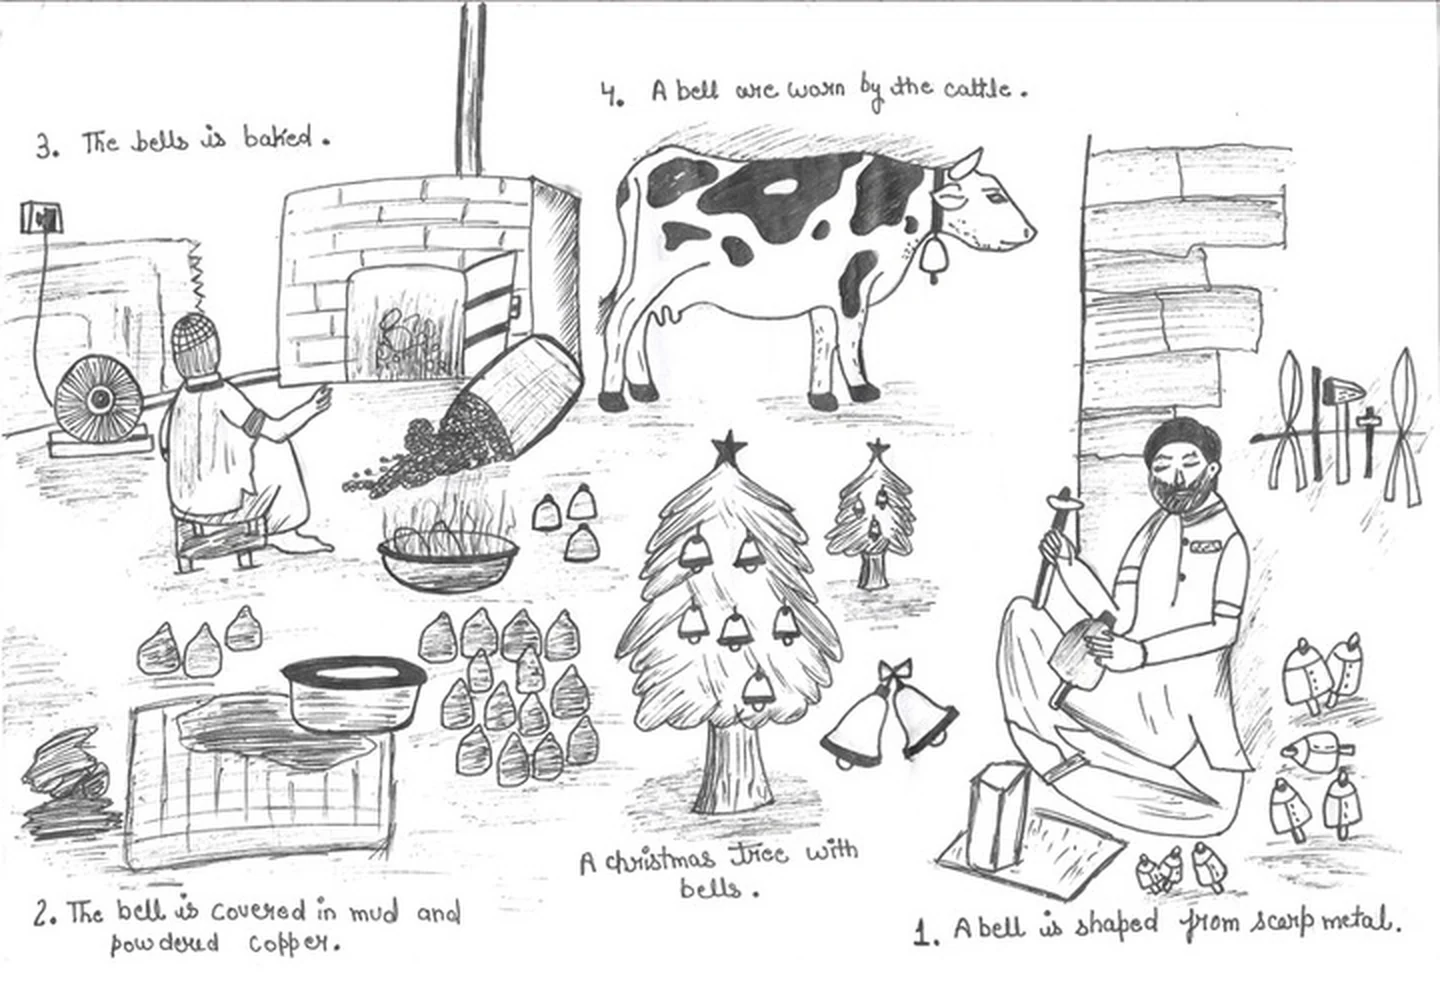 4. A bell are worn by the cattle.
3. The bells is baked.
A christmas tree with
bells.
2. The bell is covered in mud and
powdered copper.
1. A bell is shaped from scarp metal.